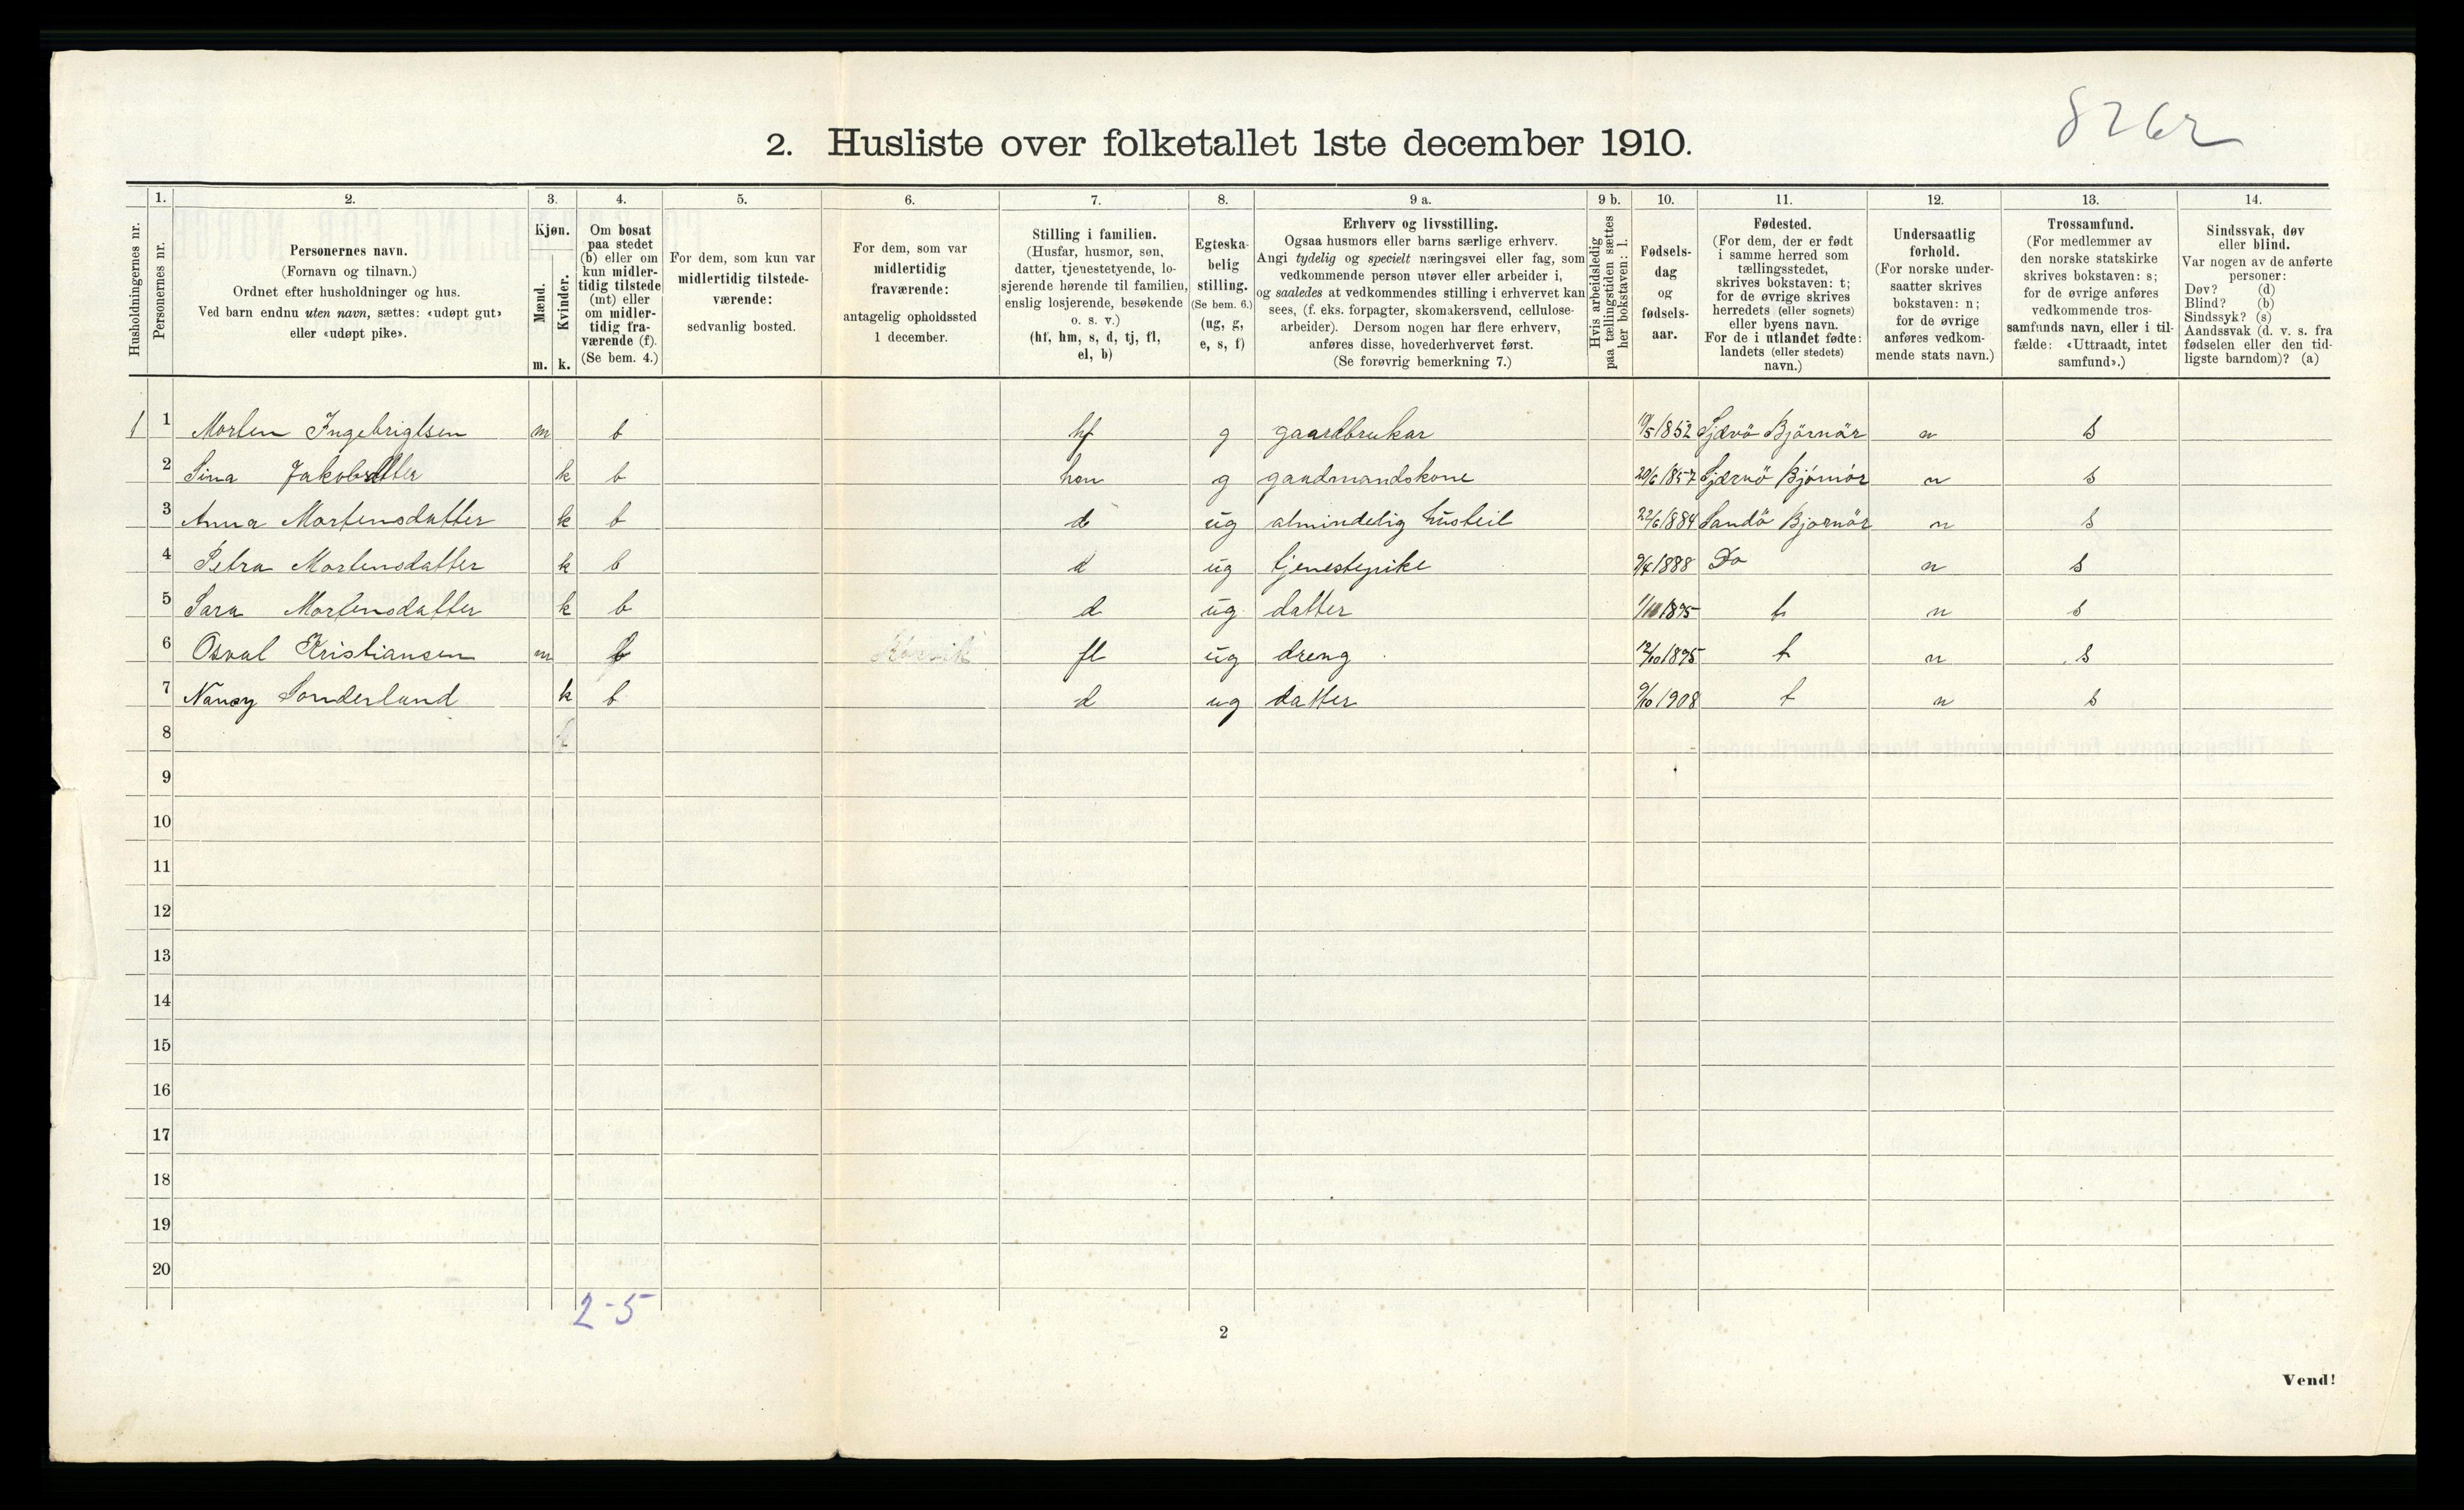 8262
2. Husliste over folketallet 1ste december 1910.
Husholdningernes nr.
1.
Personernes nr.
2.
Personernes navn.
(Fornavn og tilnavn.)
Ordnet efter husholdninger og hus.
Ved barn endnu uten navn, sættes: «udøpt gut»
eller «udøpt pike».
3.
Kjøn.
Mænd.
m.
Kvinder.
k.
4.
Om bosat
paa stedet
(b) eller om
kun midler-
tidig tilstede
(mt) eller
om midler-
tidig fra-
værende (f).
(Se bem. 4.)
5.
For dem, som kun var
midlertidig tilstede-
værende:
sedvanlig bosted.
6.
For dem, som var
midlertidig
fraværende:
antagelig opholdssted
1 december.
7.
Stilling i familien.
(Husfar, husmor, søn,
datter, tjenestetyende, lo-
sjerende hørende til familien,
enslig losjerende, besøkende
o. s. v.)
(hf, hm, s, d, tj, fl,
el, b)
8.
Egteska-
belig
stilling.
(Se bem. 6.)
(ug, g,
e, s, f)
9 a.
Erhverv og livsstilling.
Ogsaa husmors eller barns særlige erhverv.
Angi tydelig og specielt næringsvei eller fag, som
vedkommende person utøver eller arbeider i,
og saaledes at vedkommendes stilling i erhvervet kan
sees, (f. eks. forpagter, skomakersvend, cellulose-
arbeider). Dersom nogen har flere erhverv,
anføres disse, hovederhvervet først.
(Se forøvrig bemerkning 7.)
9 b.
Hvis arbeidsledig
paa tællingstiden sættes
her bokstaven: l.
10.
Fødsels-
dag
og
fødsels-
aar.
11.
Fødested.
(For dem, der er født
i samme herred som
tællingsstedet,
skrives bokstaven: t;
for de øvrige skrives
herredets (eller sognets)
eller byens navn.
For de i utlandet fødte:
landets (eller stedets)
navn.)
12.
Undersaatlig
forhold.
(For norske under-
saatter skrives
bokstaven: n;
for de øvrige
anføres vedkom-
mende stats navn.)
13.
Trossamfund.
(For medlemmer av
den norske statskirke
skrives bokstaven: s;
for de øvrige anføres
vedkommende tros-
samfunds navn, eller i til-
fælde: «Uttraadt, intet
samfund».)
14.
Sindssvak, døv
eller blind.
Var nogen av de anførte
personer:
Døv? (d)
Blind? (b)
Sindssyk? (s)
Aandssvak (d. v. s. fra
fødselen eller den tid-
ligste barndom)? (a)
1 1 Morten Ingebrigtsen m b hf g gaardbrukar 10/5 1852 Sjærnö Björnör n s
2 Sina Jakobsdtter k b hm g gaadmandskone 20/6 1857 Sjærnö Björnör n s
3 Anna Mortensdatter k b d ug almindelig husteil 22/6 1884 Sandö Bjornör n s
4 Petra Mortensdatter k b d ug tjenestepike 1888 Do n s
5 Sara Mortensdatter k b d ug datter 1895 t n s
6 Osval Kristiansen m b fl ug dreng 12/10 1895 t n s
7 Nancy Sonderland k b d ug datter 9/10 1908 t n s
8
9
10
11
12
13
14
15
16
17
18
19
20
2-5
2
Vend!